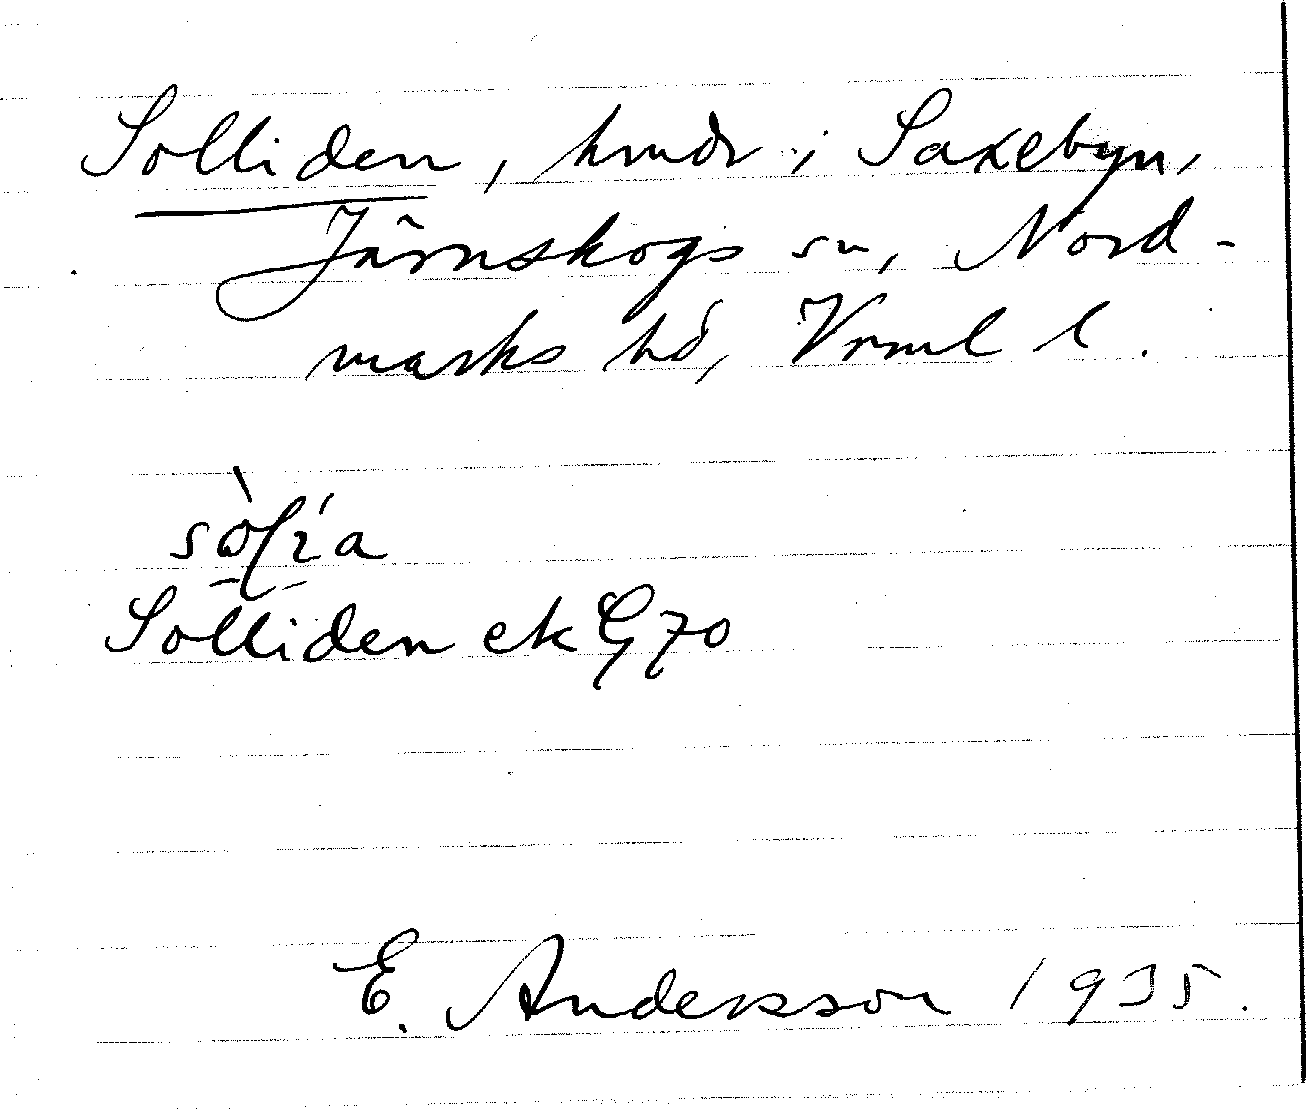 Solliden, hmdr i Saxebyn,
Järnskogs sn, Nord-
marks hd, Vrml l.
Solliden ek G 70
E. Andersson 1935.